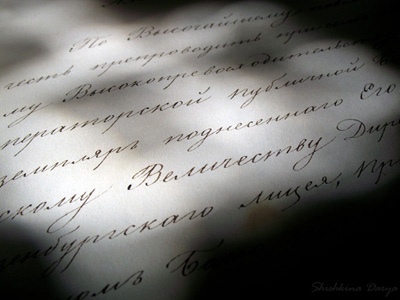 По Высочайшему
честь препроводить при
му Высокопревосходитель
ператорской публичной
земпляръ поднесеннаго Его
скому Величеству Дир
енбургскаго лицея, Пр
омъ Ба
Shishkina Darya